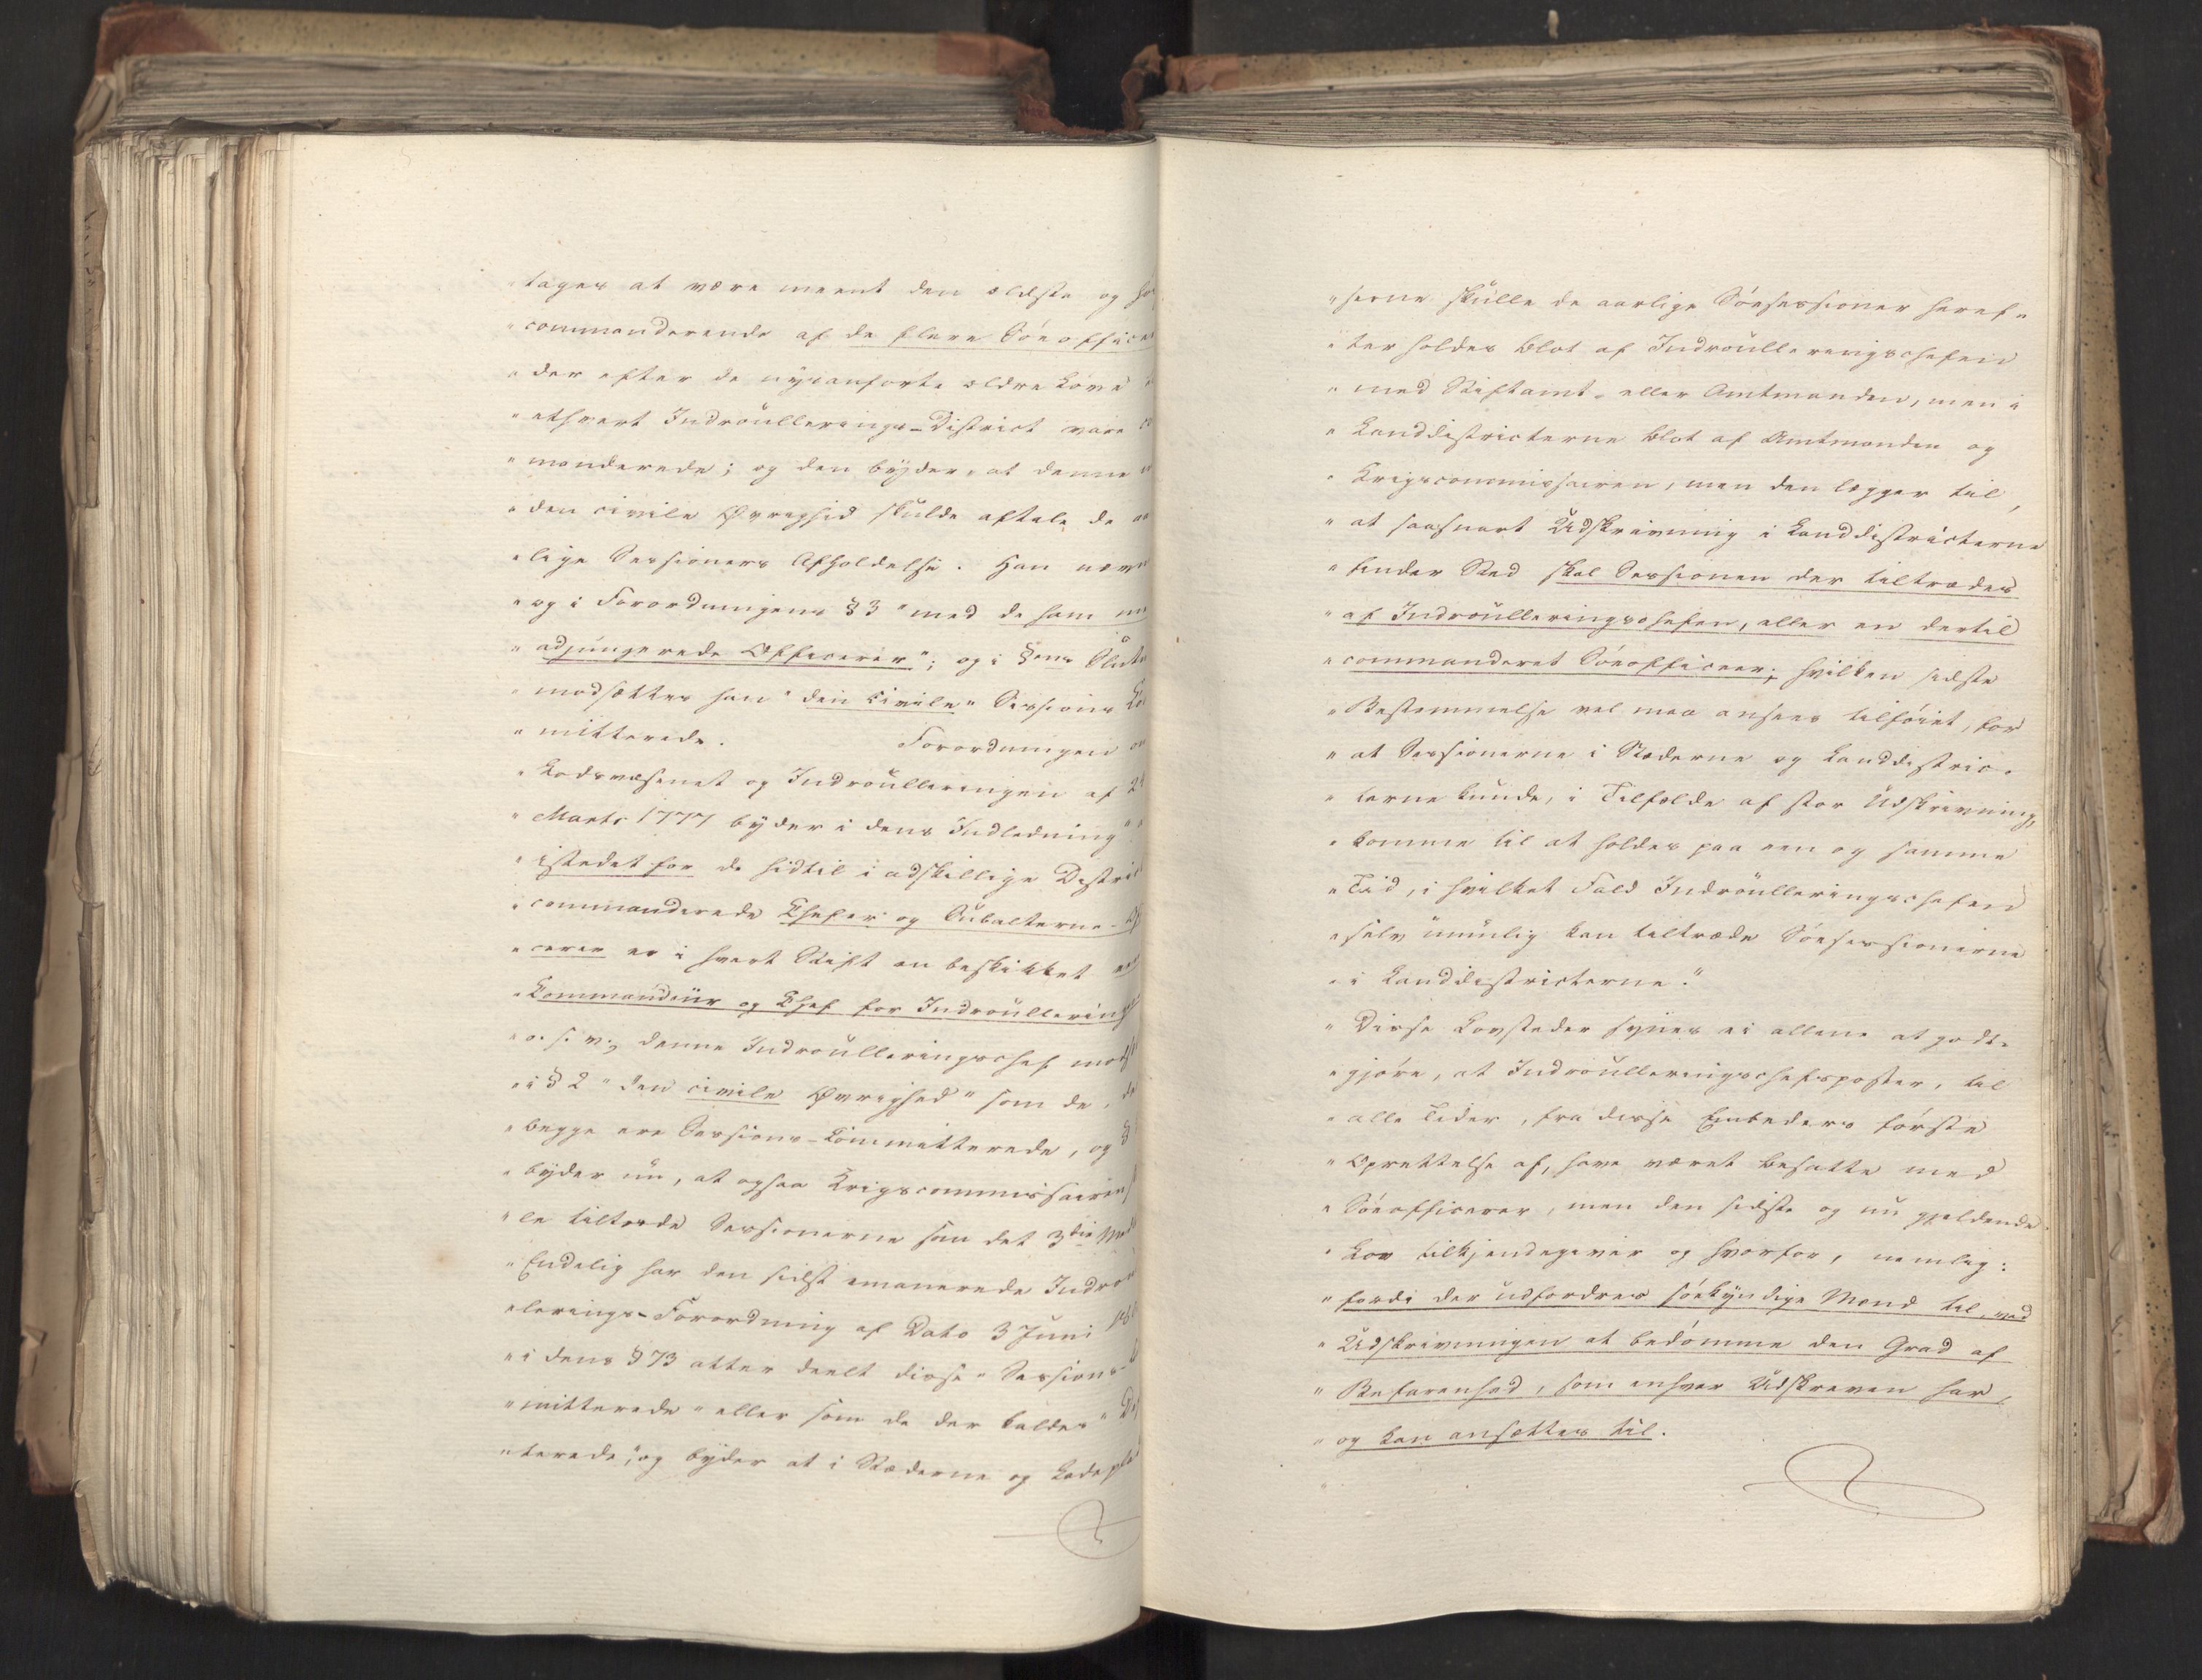 "tages at være meent den ældste og
"commanderende af de flere Söeofficer
"der efter de nysanforte ældre Love
"ethvert Indroullerings-District vare
"manderede; og den byder, at denne
"den civile Øvrighed skulde aftale de
"lige Sessioners Afholdelse. Han nævn
"og i Forordningens § 3 "med de ham
"adjungerede Officerer"; og i §ens Slut
"modsættes han "den civile" Sessions
"mitterede. Forordningen
"Lodsvæsenet og Indroulleringen af
"Marts 1777 byder i dens Indledning"
"istedet for de hidtil i adskillige Distri
"commanderede Chefer og Subalterne-
"cerer er i hvert Stift en beskikket
"Commandeur og Chef for Indroullering
"o. s. v., denne Indroulleringschef mods
"i § 2 "den civile Øvrighed" som de,
"begge ere Sessions-Committerede, og
"byder nu, at ogsaa Krigscommissairen
"le tiltræde Sessionerne som det 3die
"Endelig har den sidst emanerede Indrou
"lerings-Forordning af Dato 3 Juni
"i dens § 73 atter deelt disse "Sessions-
"mitterede" eller som de der kaldes "
"terede," og byder at i Stæderne og Ladepla
"serne skulle de aarlige Söesessioner heref-
"ter holdes blot af Indroulleringschefen
"med Stiftamt- eller Amtmanden, men i
"Landdistricterne blot af Amtmanden og
"Krigscommissairen, men den lægger til,
"at saasnart Udskrivning i Landdistricterne
"finder Sted skal Sessionen der tiltrædes
"af Indroulleringschefen, eller en dertil
"commanderet Söeofficeer; hvilken sidste
"Bestemmelse vel maa ansees tilföiet, for
"at Sessionerne i Stæderne og Landdistric-
"terne kunde, i Tilfælde af stor Udskrivning,
"komme til at holdes paa een og samme
"Tid, i hvilket Fald Indroulleringschefen
"selv umulig kan tiltræde Söesessionerne
"i Landdistricterne."
"Disse Lovsteder synes ei allene at godt-
"gjöre, at Indroulleringschefsposter, til
"alle Tider, fra disse Embeders förste
"Oprettelse af, have været besatte med
"Söeofficerer, men den sidste og nu gjeldende
"Lov tilkjendegiver og hvorfor, nemlig:
"fordi der udfordres söekyndige Mænd til, ved
"Udskrivningen at bedömme den Grad af
"Befarenhed, som enhver Udskreven har,
"og kan ansættes til.